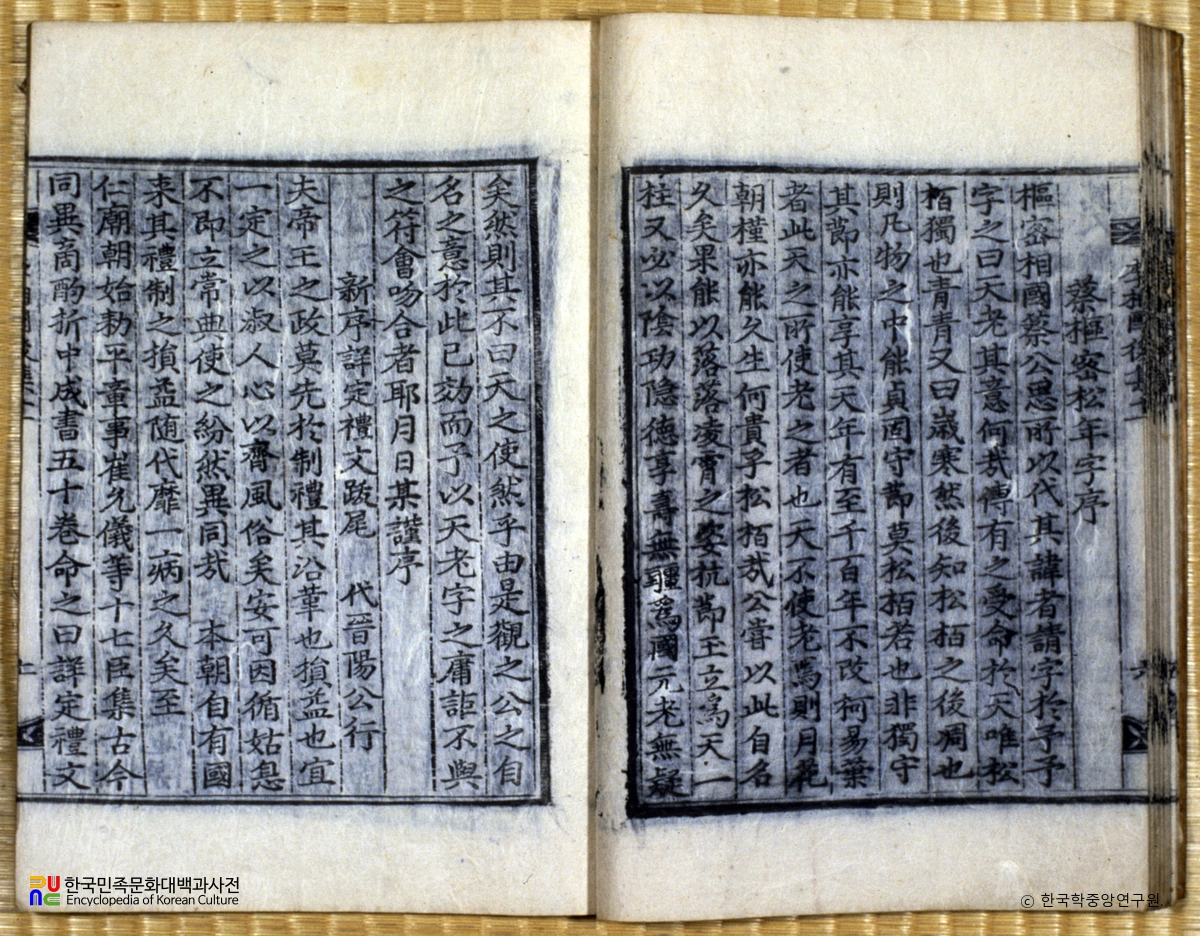 蔡樞密松年字序
樞密相國蔡公思所以代其諱者請字於予予
字之曰天老其意何哉傳有之受命於天唯松
栢獨也靑靑又曰歲寒然後知松栢之後凋也
則凡物之中能貞固守節莫松栢若也非獨守
其節亦能享其天年有至千百年不改柯易葉
者此天之所使老之者也天不使老焉則月花
朝槿亦能久生何貴乎松栢哉公嘗以此自名
久矣果能以落落凌霄之姿抗節王立高天一
柱又必以陰功隱德享壽無疆爲國元老無疑
矣然則其不曰天之使然乎由是觀之公之自
名之意於此已効而予以天老字之庸詎不與
之符會吻合者耶月日某謹序
新序詳定禮文跋尾 代晉陽公行
夫帝王之政莫先於制禮其沿革也損益也宜
一定之以淑人心以齊風俗矣安可因循姑息
不即立常典使之紛然異同哉 本朝自有國
來其禮制之損益随代靡一病之久矣至
仁廟朝始勑平章事崔允儀等十七臣集古今
同異商酌折中成書五十卷命之曰詳定禮文
한국민족문화대백과사전
Encyclopedia of Korean Culture
© 한국학중앙연구원